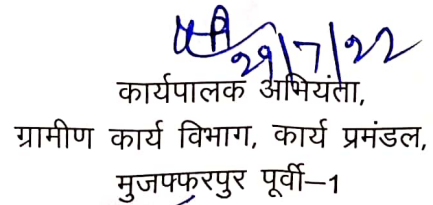 29/7/22
कार्यपालक अभियंता,
ग्रामीण कार्य विभाग, कार्य प्रमंडल,
मुजफ्फरपुर पूर्वी–1